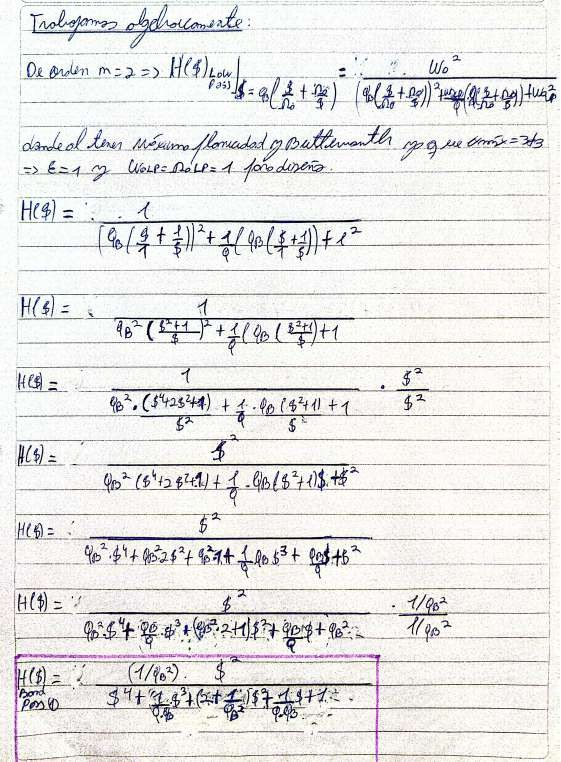 Trabajamos algebraicamente:
De orden m=2 => H($) Low Pass | $ = qB($/Ω0 + Ω0/$) = ω0² / (qB($/Ω0 + Ω0/$))² + (qB($/Ω0 + Ω0/$)) + ω0²
donde al tener máxima planicidad y Butterworth ya q ue αmáx=3dB
=> ε=1 y ω0LP=Ω0LP=1 para diseño.
H($) = 1 / (qB($/1 + 1/$))² + 1/q (qB($/1 + 1/$)) + 1²
H($) = 1 / qB² (($²+1)/$)² + 1/q (qB (($²+1)/$) + 1
H($) = 1 / qB² · ($⁴+2$²+1)/$² + 1/q · qB ($²+1)/$ + 1 · $²/$²
H($) = $² / qB² ($⁴+2$²+1) + 1/q · qB($²+1)$ + $²
H($) = $² / qB²·$⁴ + qB²·2$² + qB²·1 + 1/q qB $³ + qB/q $ + $²
H($) = $² / qB²·$⁴ + qB/q ·$³ + (qB²·2+1)$² + qB/q $ + qB² · 1/qB² / 1/qB²
H($) Band Pass = (1/qB²) · $² / $⁴ + 1/q·qB $³ + (2+1/qB²)$² + 1/q·qB $ + 1